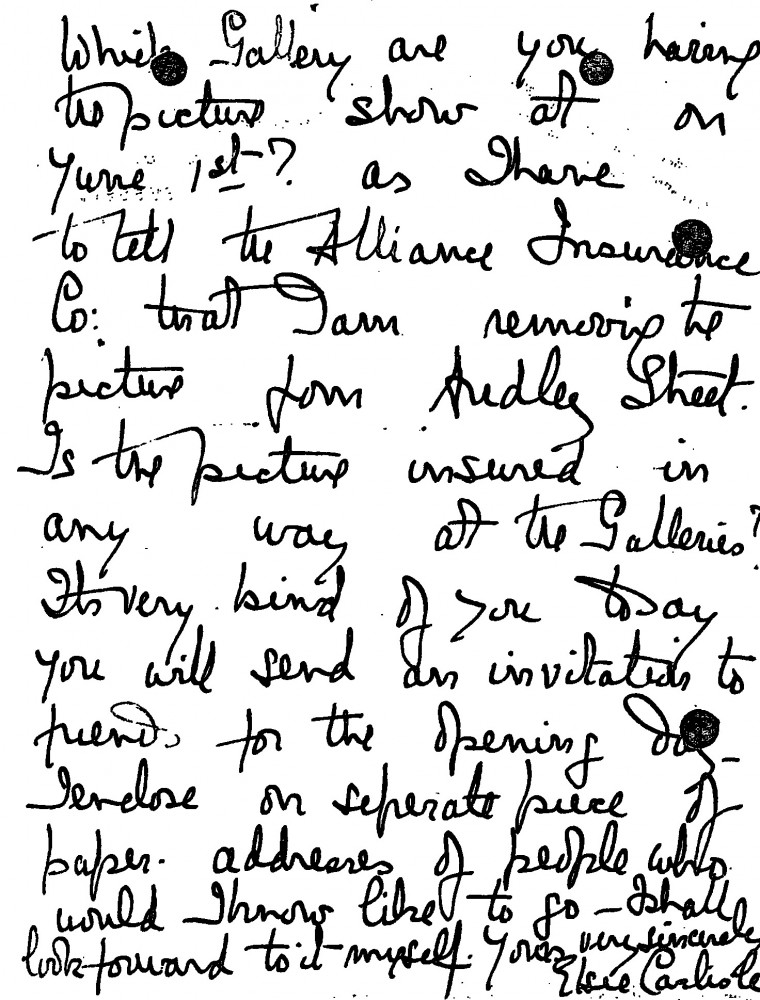 Which Gallery are you having
the picture show at on
June 1st? as I have
to tell the Alliance Insurance
Co: that I am removing the
picture from Audley Street.
Is the picture insured in
any way at the Galleries?
Its very kind of you to say
you will send an invitation to
friends for the opening day –
I enclose on seperate piece of
paper. addresses of people who
would I know like to go – I shall
look forward to it myself. Yours very sincerely
Elsie Carlisle